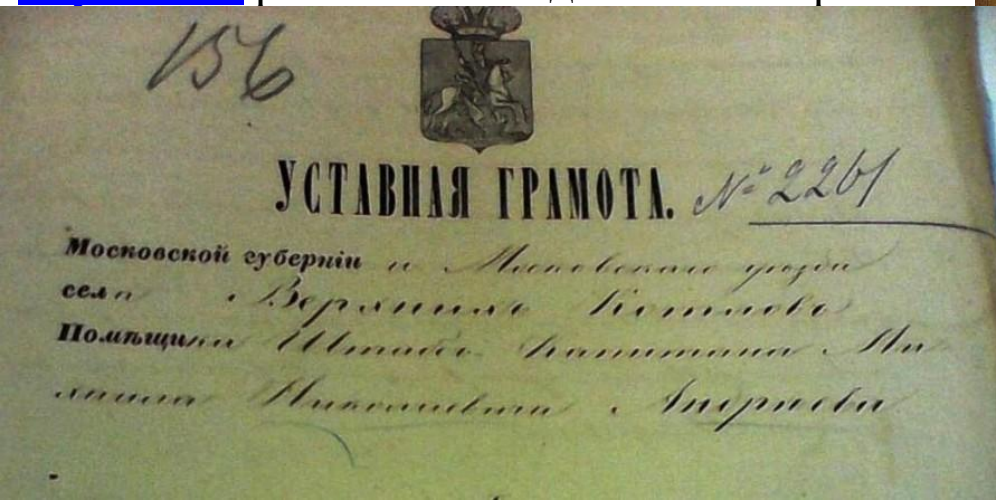 156
УСТАВНАЯ ГРАМОТА. № 2261
Московской губерніи и Московскаго уѣзда
села Верхнихъ Котловъ
Помѣщика Штабсъ Капитана Ми
хаила Николаевича